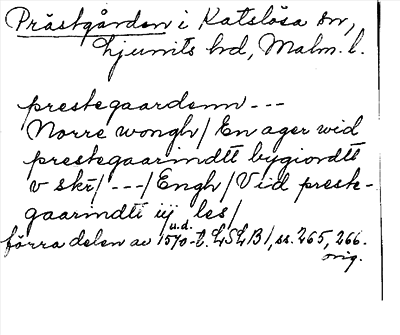 Prästgården i Katslösa sn,
Ljunits hd, Malm. l.
prestegaardenn ---
Norre wongh / En ager wid
prestegaarindtt bygiordtt
v skr / --- / Engh / Vid preste-
gaarindtt iij les /
u.d.
förra delen av 1570-t. LSLB 1, ss. 265, 266.
orig.